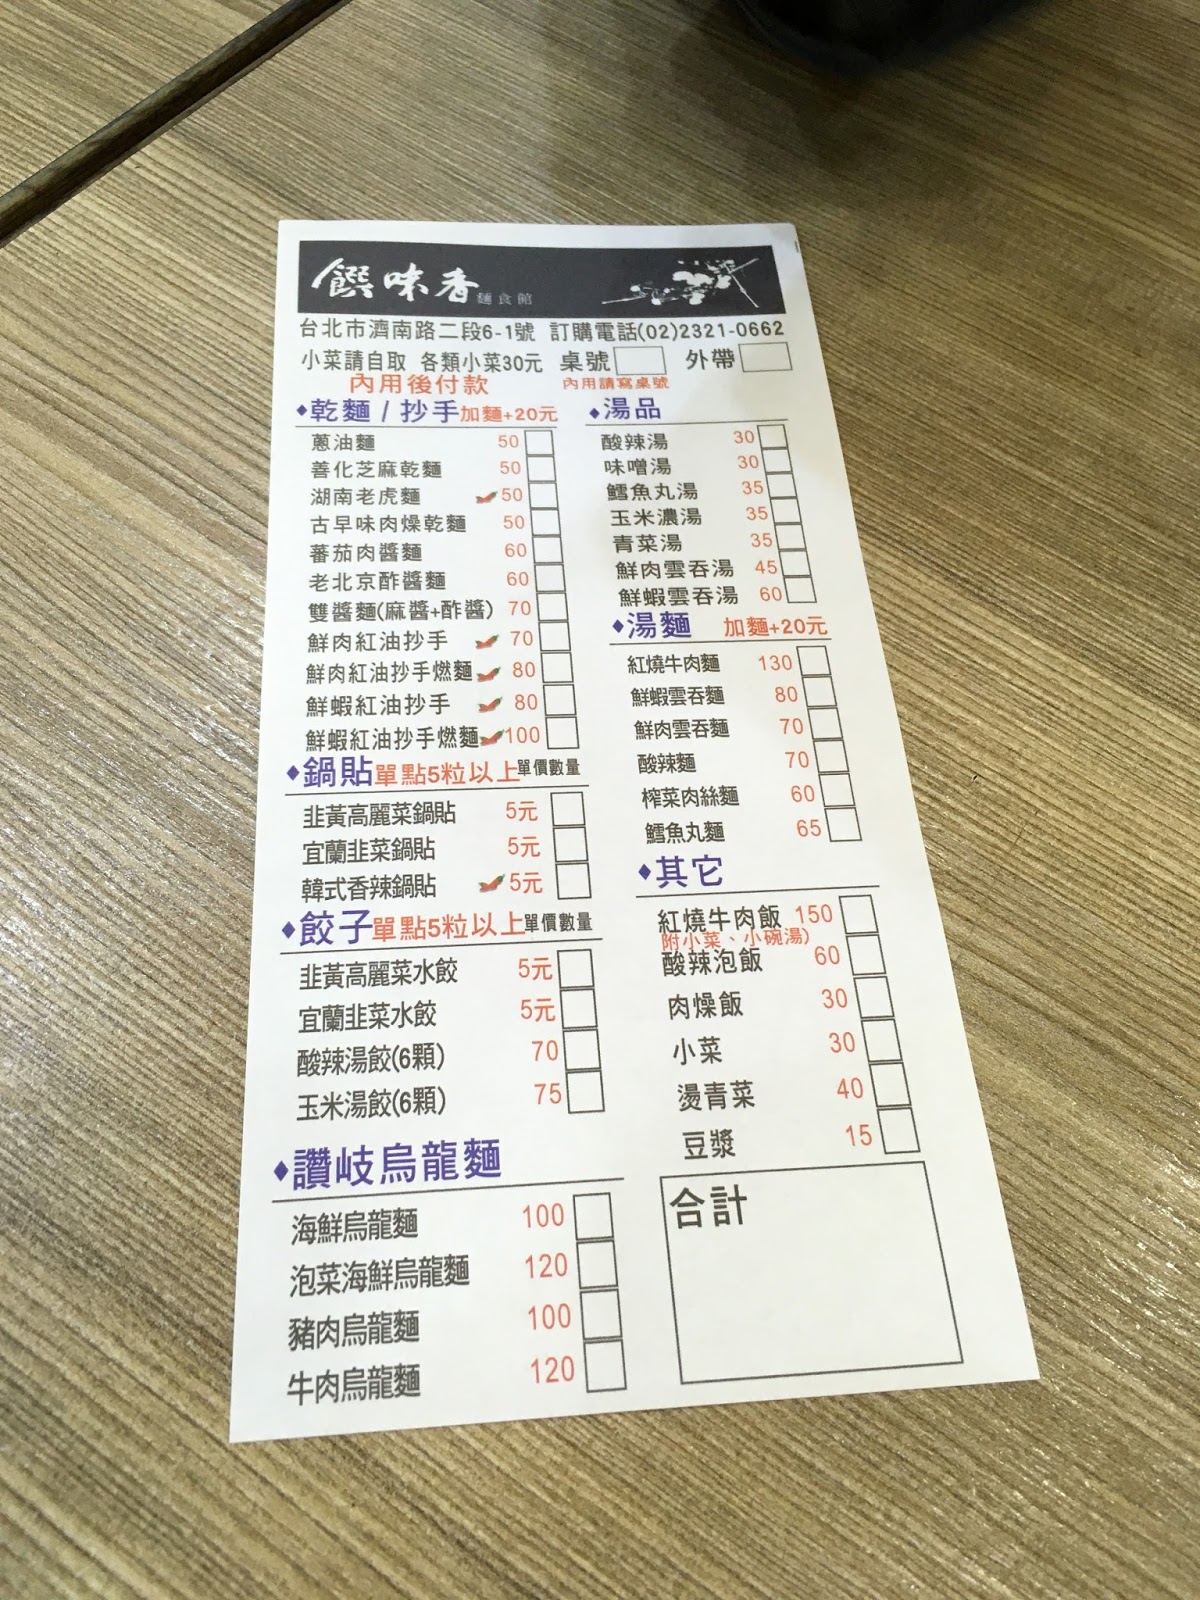 饌味香 麵食館
台北市濟南路二段6-1號 訂購電話(02)2321-0662
小菜請自取 各類小菜30元 桌號 外帶
內用後付款 內用請寫桌號
◆乾麵 / 抄手加麵+20元
蔥油麵 50
善化芝麻乾麵 50
湖南老虎麵 50
古早味肉燥乾麵 50
蕃茄肉醬麵 60
老北京酢醬麵 60
雙醬麵(麻醬+酢醬) 70
鮮肉紅油抄手 70
鮮肉紅油抄手燃麵 80
鮮蝦紅油抄手 80
鮮蝦紅油抄手燃麵 100
◆鍋貼單點5粒以上單價數量
韭黃高麗菜鍋貼 5元
宜蘭韭菜鍋貼 5元
韓式香辣鍋貼 5元
◆餃子單點5粒以上單價數量
韭黃高麗菜水餃 5元
宜蘭韭菜水餃 5元
酸辣湯餃(6顆) 70
玉米湯餃(6顆) 75
◆讚岐烏龍麵
海鮮烏龍麵 100
泡菜海鮮烏龍麵 120
豬肉烏龍麵 100
牛肉烏龍麵 120
◆湯品
酸辣湯 30
味噌湯 30
鱈魚丸湯 35
玉米濃湯 35
青菜湯 35
鮮肉雲吞湯 45
鮮蝦雲吞湯 60
◆湯麵 加麵+20元
紅燒牛肉麵 130
鮮蝦雲吞麵 80
鮮肉雲吞麵 70
酸辣麵 70
榨菜肉絲麵 60
鱈魚丸麵 65
◆其它
紅燒牛肉飯 150
附小菜、小碗湯)
酸辣泡飯 60
肉燥飯 30
小菜 30
燙青菜 40
豆漿 15
合計